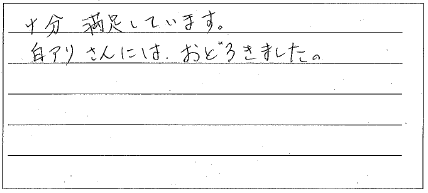 十分 満足しています。
白アリさんには、おどろきました。